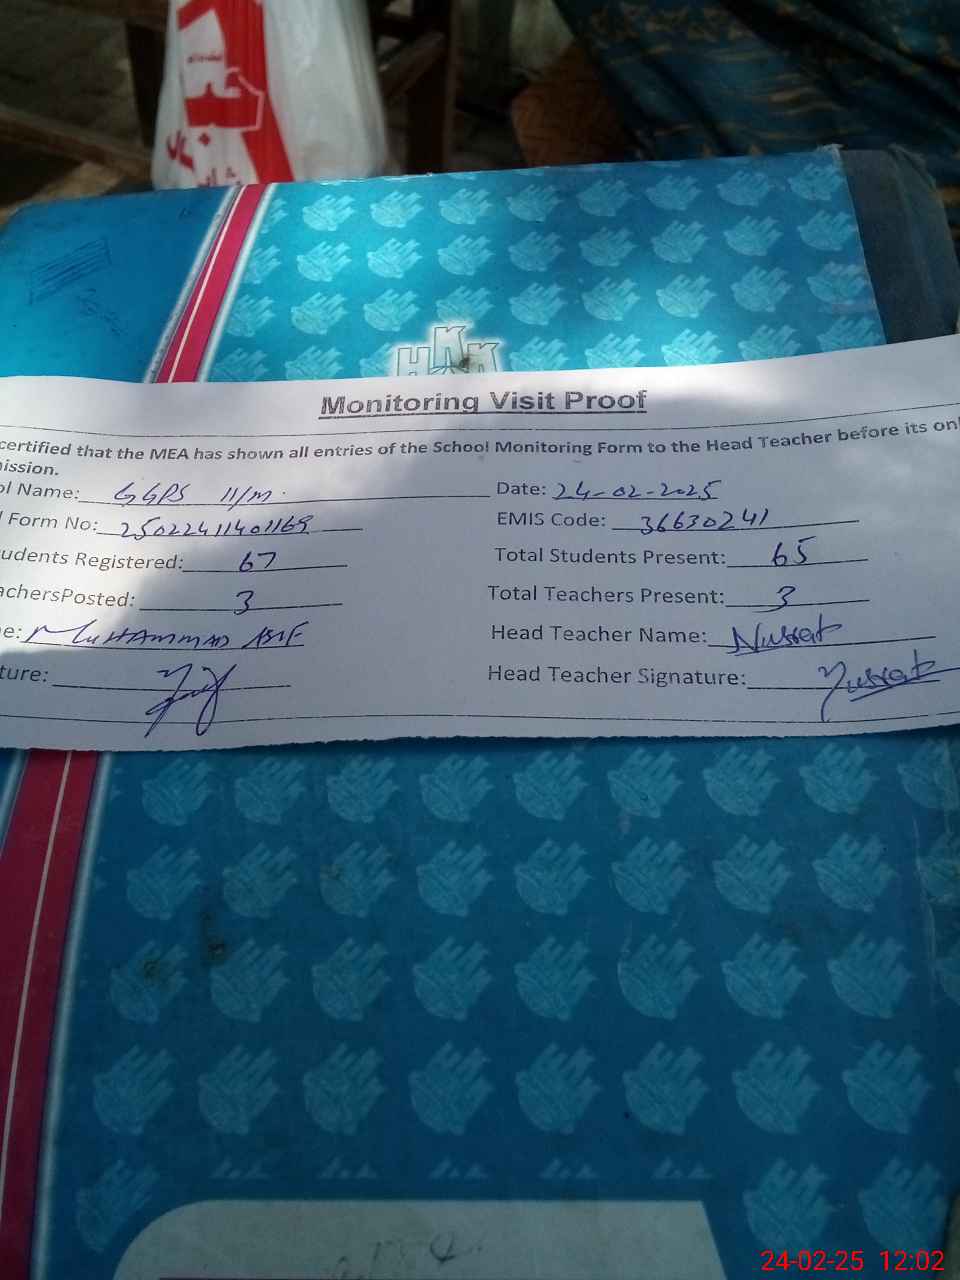 Monitoring Visit Proof
certified that the MEA has shown all entries of the School Monitoring Form to the Head Teacher before its onl
ission.
ol Name: GGPS 11/M. Date: 24-02-2025
l Form No: 25022411401169 EMIS Code: 36630241
udents Registered: 67 Total Students Present: 65
achersPosted: 3 Total Teachers Present: 3
e: MUHAMMAD ASIF Head Teacher Name: Nusrat
ture: Head Teacher Signature: Nusrat
24-02-25 12:02